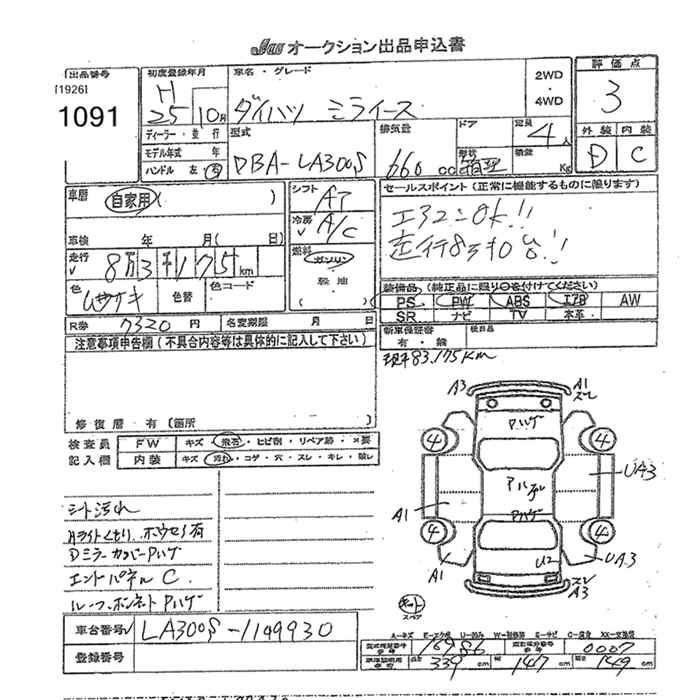 JAA オークション出品申込書
出品番号
[1926]
1091
初度登録年月
H
25 10月
車名・グレード
ダイハツ ミライース
2WD
・
4WD
評価点
3
外装 内装
D C
ディーラー・並行
モデル年式 年
ハンドル 左 右
型式
DBA-LA300S
排気量
660 cc
ドア
形状
箱型
定員 4 人
積載 Kg
車歴
自家用 ( )
車検 年 月 ( 日)
走行
8万3千175 km
色
ムラサキ
色替
色コード
シフト
AT
冷房
A/C
燃料
ガソリン
軽油
( )
セールスポイント (正常に機能するものに限ります)
エアコンOK!!
走行83
装備品 (純正品に限り○を付けてください)
PS PW ABS エアB AW
SR ナビ TV 本革
新車保証書
有・無
欠品目
R券 7320 円
名変期限 月 日
注意事項申告欄 (不具合内容等は具体的に記入して下さい)
修復歴 有 [箇所
現車83.175Km
検査員
記入欄
FW キズ 飛石 ヒビ割 リペア跡 ×要
内装 キズ 汚れ コゲ 穴 スレ キレ 破レ
シート汚れ
Hライトくもり
DミラーカバーPハゲ
エンドパネル C
ルーフ.ボンネットPハゲ
A3
A1
スレ
Pハゲ
4
4
UA3
A1
Pハゲ
4
4
U2
UA3
A1
スレ
A3
スペア
車台番号
LA300S-1149930
登録番号
A-キズ E-エクボ U-凹み W-補修跡 S-サビ C-腐食 XX-交換済
型式指定番号
16986
類別区分番号
0007
339 cm
147 cm
149 cm